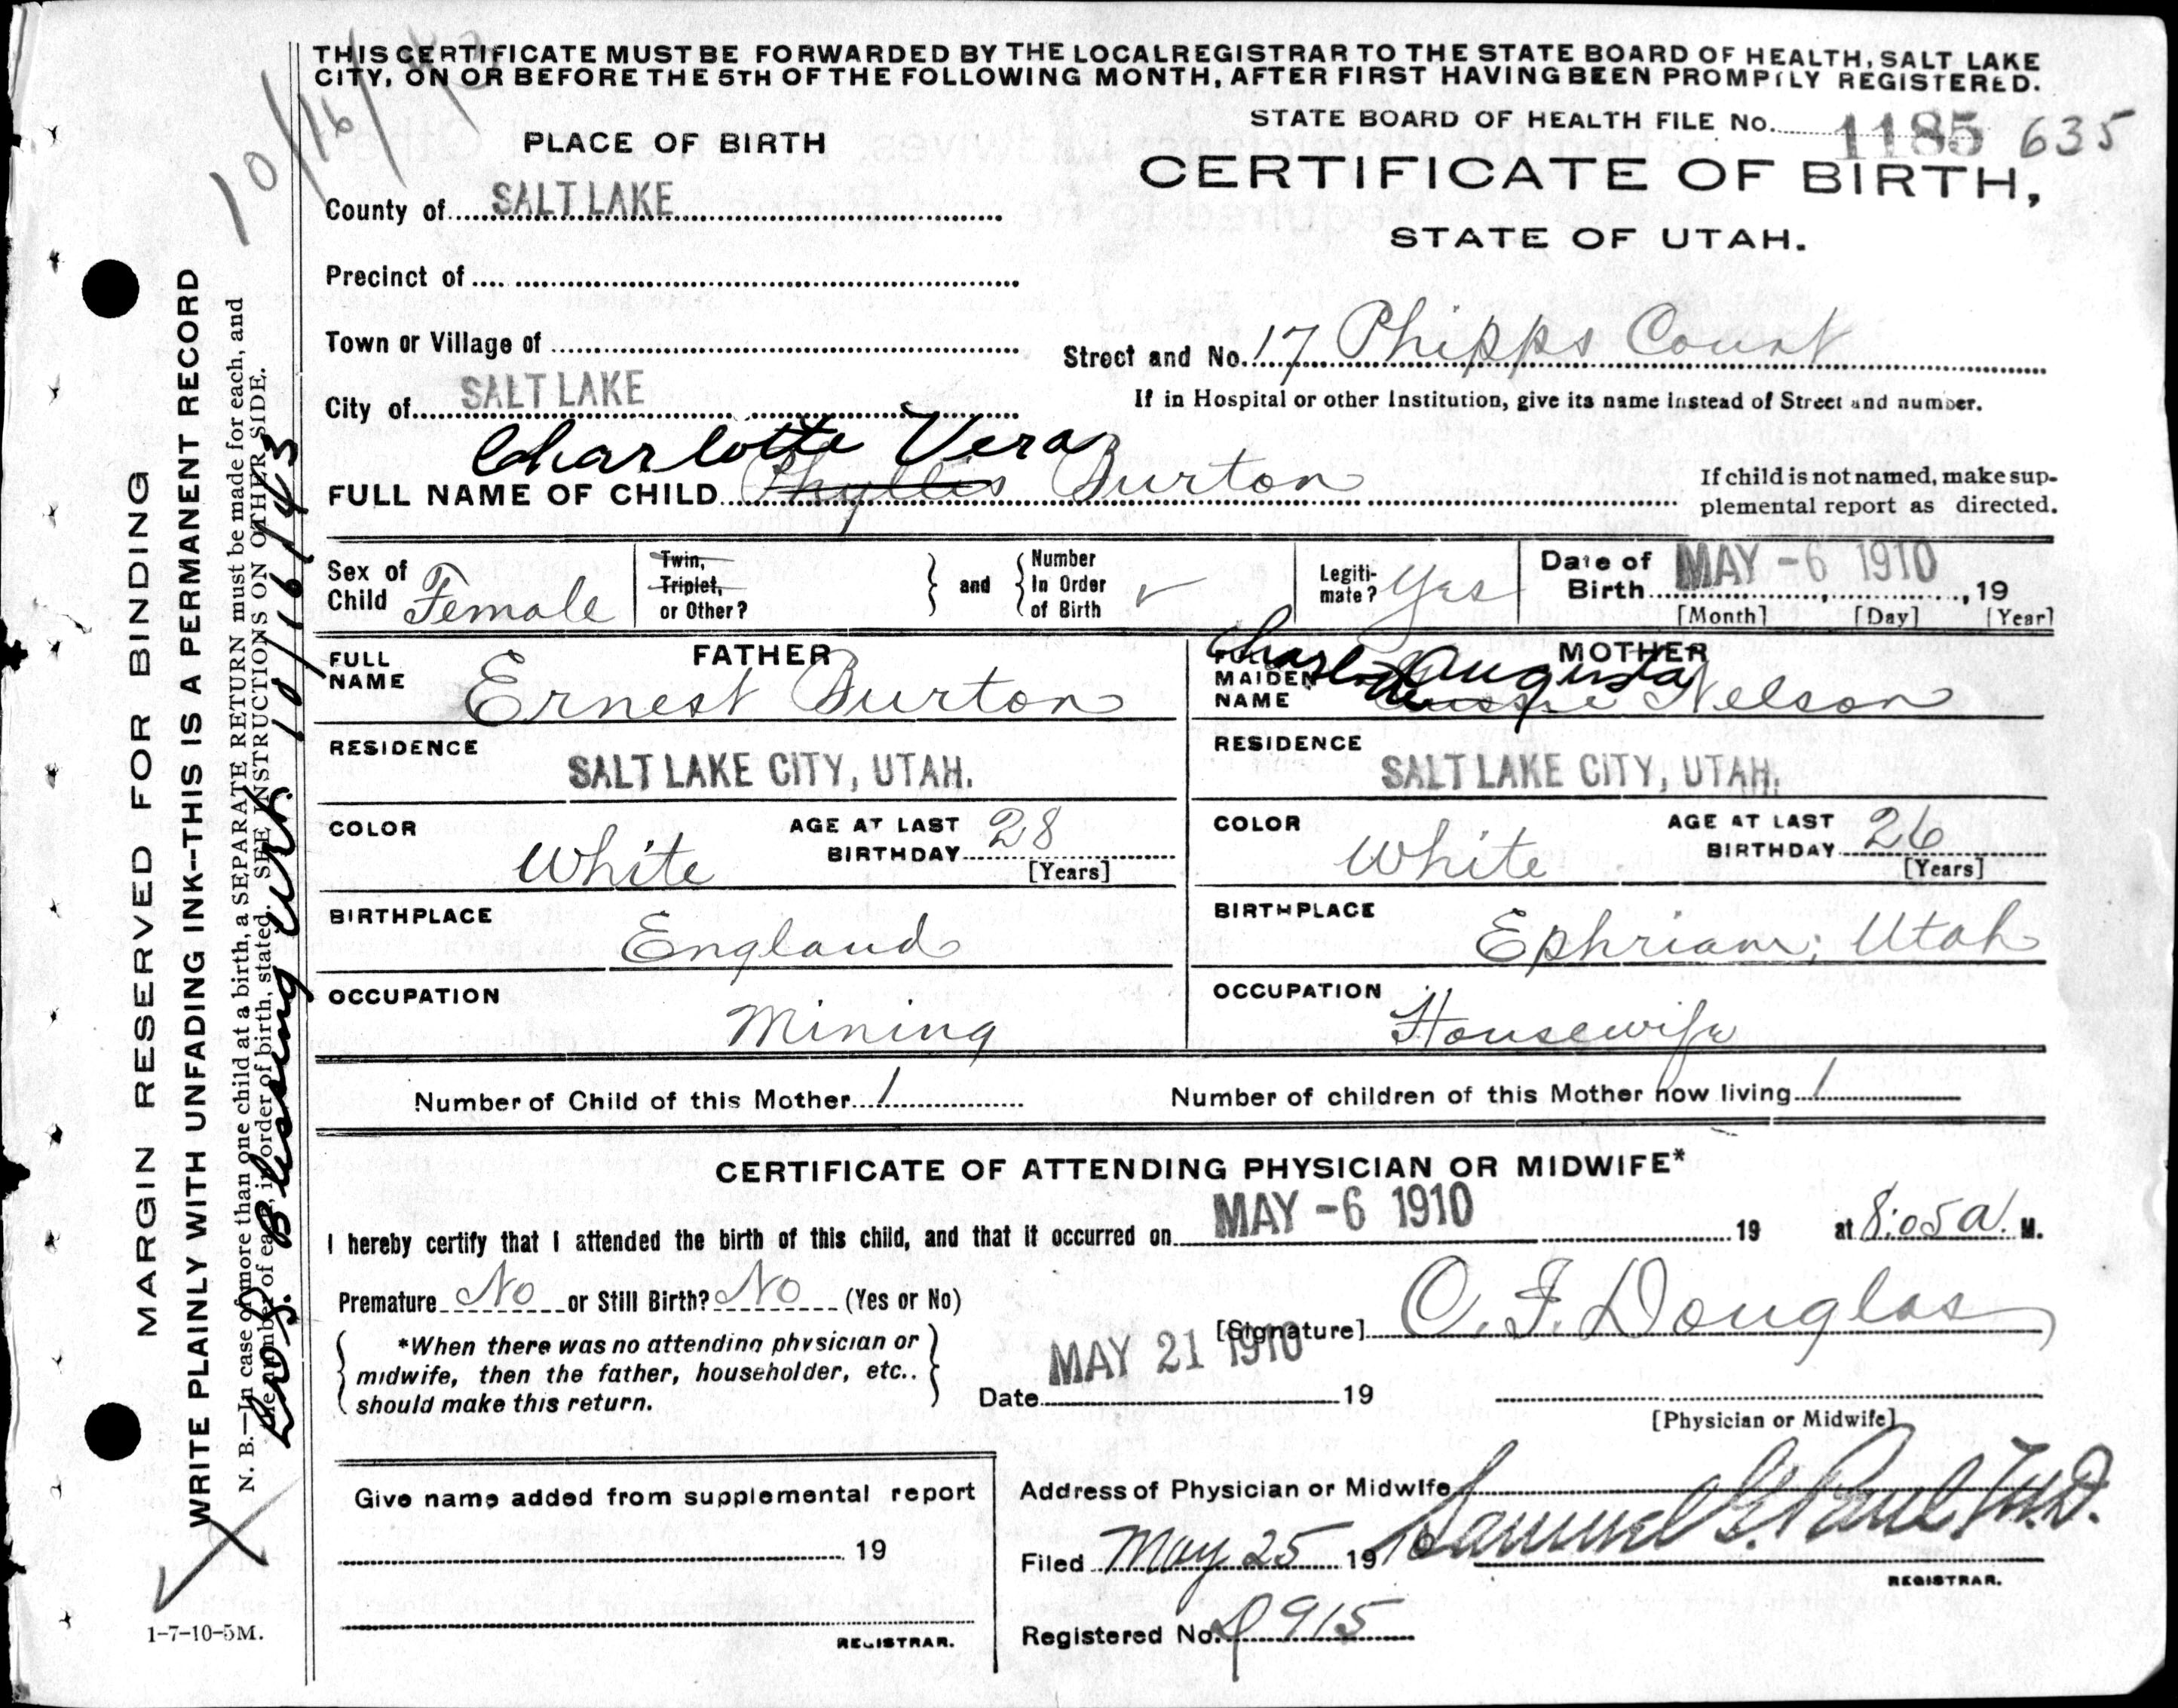 THIS CERTIFICATE MUST BE FORWARDED BY THE LOCAL REGISTRAR TO THE STATE BOARD OF HEALTH, SALT LAKE
CITY, ON OR BEFORE THE 5TH OF THE FOLLOWING MONTH, AFTER FIRST HAVING BEEN PROMPTLY REGISTERED.
STATE BOARD OF HEALTH FILE No. 1185 635
PLACE OF BIRTH
CERTIFICATE OF BIRTH,
STATE OF UTAH.
County of SALT LAKE
Precinct of
Town or Village of
Street and No. 17 Phipps Court
City of SALT LAKE
If in Hospital or other Institution, give its name instead of Street and number.
Charlotte Vera
FULL NAME OF CHILD Phyllis Burton
If child is not named, make sup-
plemental report as directed.
Sex of Child Female
Twin, Triplet, or Other?
and
Number In Order of Birth
Legiti-mate? Yes
Date of Birth MAY -6 1910, 19
[Month] [Day] [Year]
FATHER
FULL NAME Ernest Burton
RESIDENCE
SALT LAKE CITY, UTAH.
COLOR White
AGE AT LAST BIRTHDAY 28
[Years]
BIRTHPLACE
England
OCCUPATION
Mining
MOTHER
MAIDEN NAME Augusta Nelson
RESIDENCE
SALT LAKE CITY, UTAH.
COLOR White
AGE AT LAST BIRTHDAY 26
[Years]
BIRTHPLACE
Ephriam, Utah
OCCUPATION
Housewife
Number of Child of this Mother 1
Number of children of this Mother now living 1
CERTIFICATE OF ATTENDING PHYSICIAN OR MIDWIFE*
I hereby certify that I attended the birth of this child, and that it occurred on MAY -6 1910 19 at 8:05 a. M.
Premature No or Still Birth? No (Yes or No)
*When there was no attending physician or
midwife, then the father, householder, etc..
should make this return.
[Signature] O. F. Douglas
Date MAY 21 1910 19
[Physician or Midwife]
Give name added from supplemental report
19
REGISTRAR.
Address of Physician or Midwife
Filed May 25 1910 Samuel G. Paul M.D.
REGISTRAR.
Registered No. 915
MARGIN RESERVED FOR BINDING
WRITE PLAINLY WITH UNFADING INK--THIS IS A PERMANENT RECORD
N. B.—In case of more than one child at a birth, a SEPARATE RETURN must be made for each, and
the number of each, in order of birth, stated. SEE INSTRUCTIONS ON OTHER SIDE.
10/16/43
1-7-10-5M.